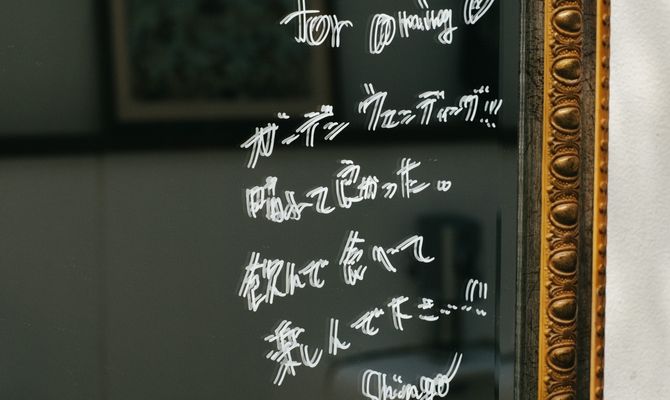 For
ガーデン ウェディング!!
晴れて良かった。
飲んで食べて
楽しんで
Shingo